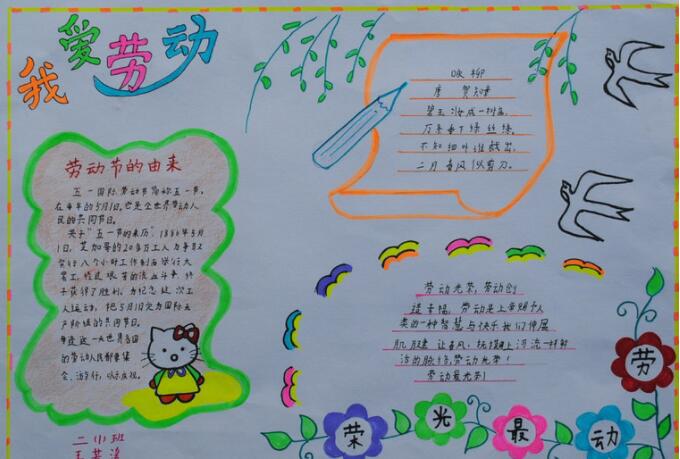 我爱劳动
劳动节的由来
五一国际劳动节简称五一节,
在每年的5月1日。它是全世界劳动人
民的共同节日。
关于“五一节的来历”,1886年5月
1日,芝加哥的20多万工人为争取
实行八个小时工作制而举行大
罢工,经过艰苦的流血斗争,终
于获得了胜利。为纪念这次工
人运动,把5月1日定为国际无
产阶级的共同节日。
每逢这一天世界各国
的劳动人民都要集
会、游行,以示庆祝。
二小班
咏柳
唐 贺知章
碧玉妆成一树高,
万条垂下绿丝绦。
不知细叶谁裁出,
二月春风似剪刀。
劳动光荣,劳动创
造幸福,劳动是上帝赐予人
类的一种智慧与快乐我们伸展
肌肤 让春风,抚摸上河流一样鲜
活的脉络,劳动光荣!
劳动最光荣!
劳
动
最
光
荣